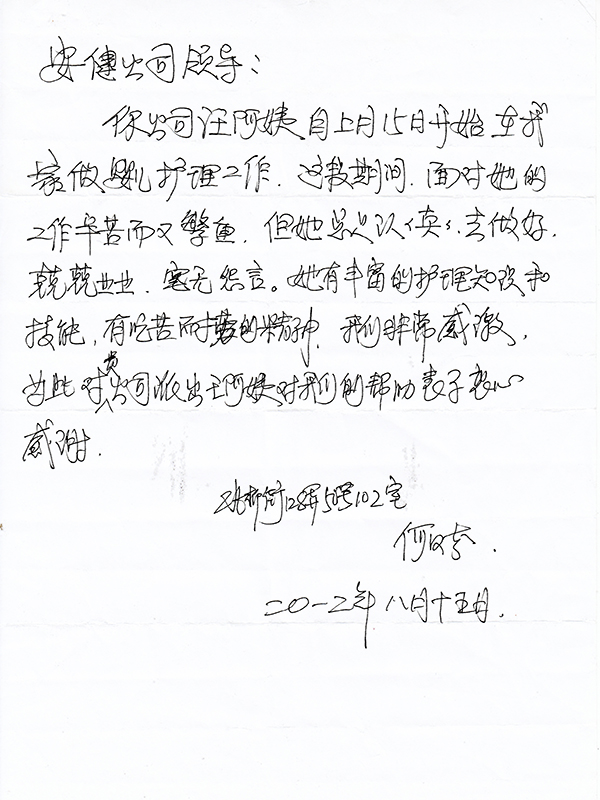 安健公司领导：
你公司汪阿姨自上月15日开始在我
家做婴儿护理工作．这段期间．面对她的
工作辛苦而又繁重．但她总是认认真真去做好．
兢兢业业．毫无怨言。她有丰富的护理知识和
技能．有吃苦而耐劳的精神．我们非常感激．
为此对贵公司派出王阿姨对我们的帮助表示衷心
感谢．
弄5号102室
何
二〇一二年八月十五日．